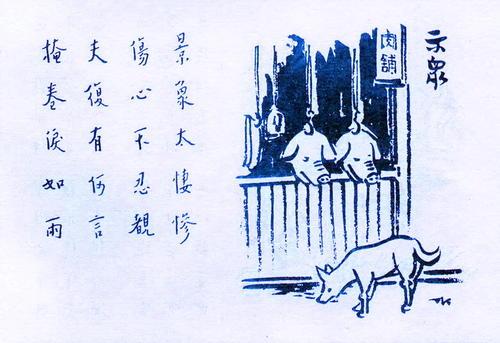 示眾
肉舖
景象太悽慘
傷心不忍覩
夫復有何言
掩卷淚如雨